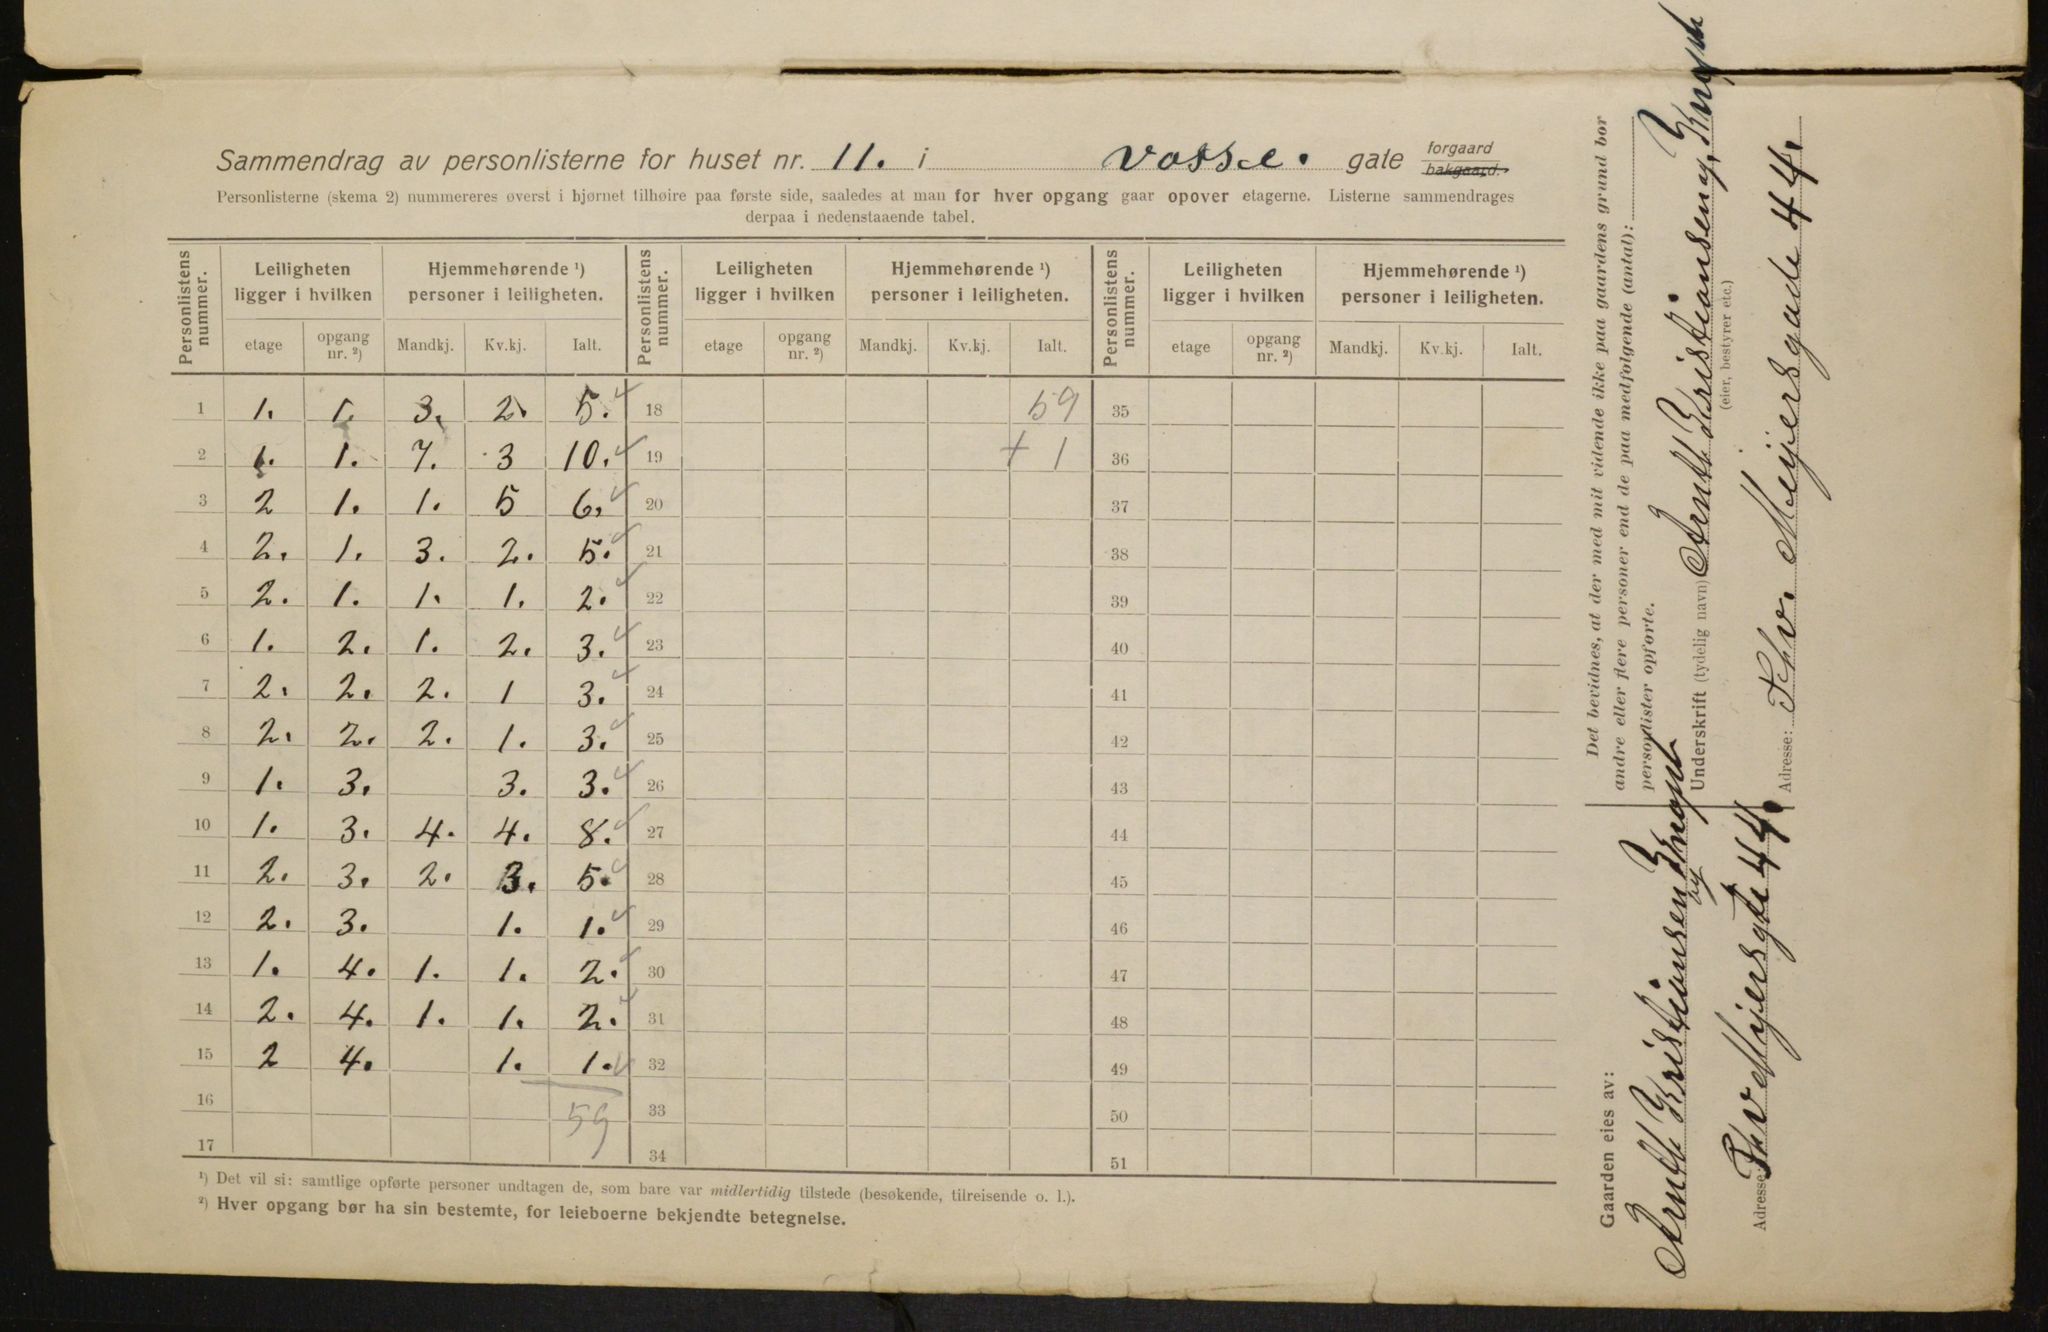 Sammendrag av personlisterne for huset nr. 11. i Vosse. gate forgaard ~~bakgaard.~~
Personlisterne (skema 2) nummereres øverst i hjørnet tilhøire paa første side, saaledes at man for hver opgang gaar opover etagerne. Listerne sammendrages
derpaa i nedenstaaende tabel.
Personlistens nummer. | Leiligheten ligger i hvilken | Hjemmehørende ¹) personer i leiligheten. | Personlistens nummer. | Leiligheten ligger i hvilken | Hjemmehørende ¹) personer i leiligheten. | Personlistens nummer. | Leiligheten ligger i hvilken | Hjemmehørende ¹) personer i leiligheten.
etage | opgang nr. ²) | Mandkj. | Kv.kj. | Ialt. | etage | opgang nr. ²) | Mandkj. | Kv.kj. | Ialt. | etage | opgang nr. ²) | Mandkj. | Kv.kj. | Ialt.
1 | 1. | 1. | 3. | 2. | 5. | 18 | 59 | 35
2 | 1. | 1. | 7. | 3 | 10. | 19 | + 1 | 36
3 | 2 | 1. | 1. | 5 | 6. | 20 | 37
4 | 2. | 1. | 3. | 2. | 5. | 21 | 38
5 | 2. | 1. | 1. | 1. | 2. | 22 | 39
6 | 1. | 2. | 1. | 2. | 3. | 23 | 40
7 | 2. | 2. | 2. | 1 | 3. | 24 | 41
8 | 2. | 2. | 2. | 1. | 3. | 25 | 42
9 | 1. | 3. | | 3. | 3. | 26 | 43
10 | 1. | 3. | 4. | 4. | 8. | 27 | 44
11 | 2. | 3. | 2. | 3. | 5. | 28 | 45
12 | 2. | 3. | | 1. | 1. | 29 | 46
13 | 1. | 4. | 1. | 1. | 2. | 30 | 47
14 | 2. | 4. | 1. | 1. | 2. | 31 | 48
15 | 2 | 4. | | 1. | 1. | 32 | 49
16 | | | | | 59 | 33 | 50
17 | 34 | 51
¹) Det vil si: samtlige opførte personer undtagen de, som bare var midlertidig tilstede (besøkende, tilreisende o. l.).
²) Hver opgang bør ha sin bestemte, for leieboerne bekjendte betegnelse.
Gaarden eies av:
Arntt Kristiansen og Knopt
Adresse: Thv Meyersgt 44.
Det bevidnes, at der med mit vidende ikke paa gaardens grund bor
andre eller flere personer end de paa medfølgende (antal):
personlister opførte.
Underskrift (tydelig navn) Arntt Kristiansen og Knopt
(eier, bestyrer etc.)
Adresse: Thv. Meijersgade 44.